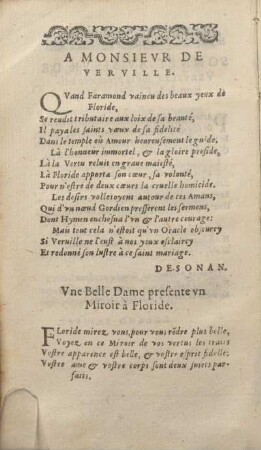 A MONSIEVR DE
VERVILLE.
QVand Faramond vaincu des beaux yeux de
Floride,
Se rendit tributaire aux loix de sa beauté,
Il paya les saints vœux de sa fidelité
Dans le temple où Amour heureusement le guide,
Là l'honneur immortel, & la gloire preside,
Là la Vertu reluit en graue maiesté,
Là Floride apporta son cœur, sa volonté,
Pour n'estre de deux cœurs la cruelle homicide.
Les desirs volletoyent autour de ces Amans,
Qui d'vn nœud Gordien presserent les sermens,
Dont Hymen enchesna l'vn & l'autre courage:
Mais tout cela n'estoit qu'vn Oracle obscurcy
Si Verville ne l'eust à nos yeux esclaircy
Et redonné son lustre à ce saint mariage.
DESONAN.
Vne Belle Dame presente vn
Miroir à Floride.
FLoride mirez vous, pour vous rẽdre plus belle,
Voyez en ce Miroir de vos vertus les traits
Vostre apparence est belle, & vostre esprit fidelle;
Vostre ame & vostre corps sont deux iustes par-
faits.